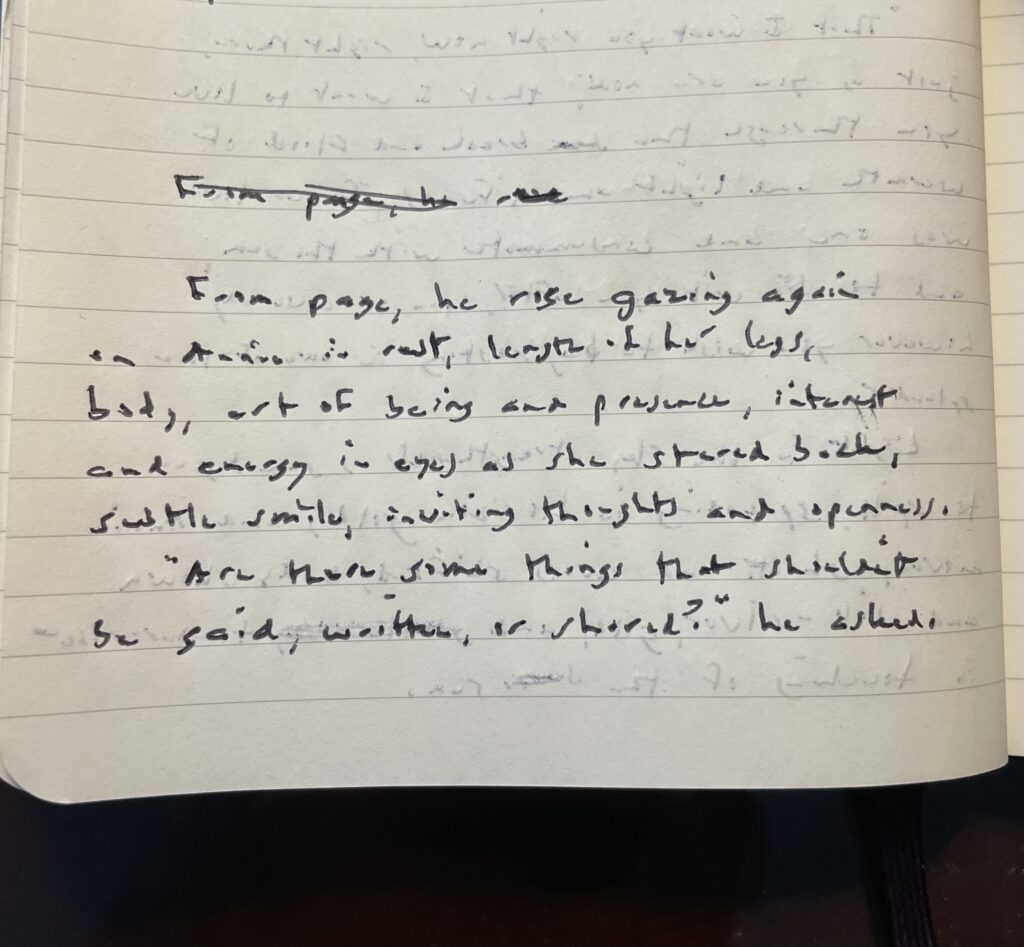 From page, he
From page, he rose gazing again
on in rest, length of her legs,
body, art of being and presence, interest
and energy in eyes as she stared back,
subtle smile, inviting thoughts and openness.
"Are there some things that shouldn't
be said, written, or shared?" he asked.